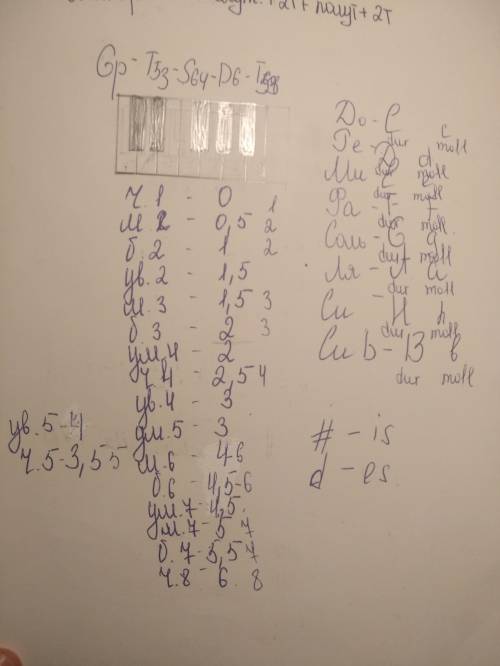 +2т+ полут+2т
Gp - T53 - S64 - D6 - T53
ч.1 - 0 1
м.2 - 0,5 2
б.2 - 1 2
ув.2 - 1,5
м.3 - 1,5 3
б.3 - 2 3
ум.4 - 2
ч.4 - 2,5 4
ув.4 - 3
ум.5 - 3
ув.5 - 4
ч.5 - 3,5 5
м.6 - 4 6
б.6 - 4,5 - 6
ум.7 - 4,5.
м.7 - 5 7
б.7 - 5,5 7
ч.8 - 6. 8
До - C c
dur moll
Ре - D d
dur moll
Ми - E e
dur moll
Фа - F f
dur moll
Соль - G g
dur moll
Ля - A a
dur moll
Си - H h
dur moll
Си b - B b
dur moll
# - is
d - es